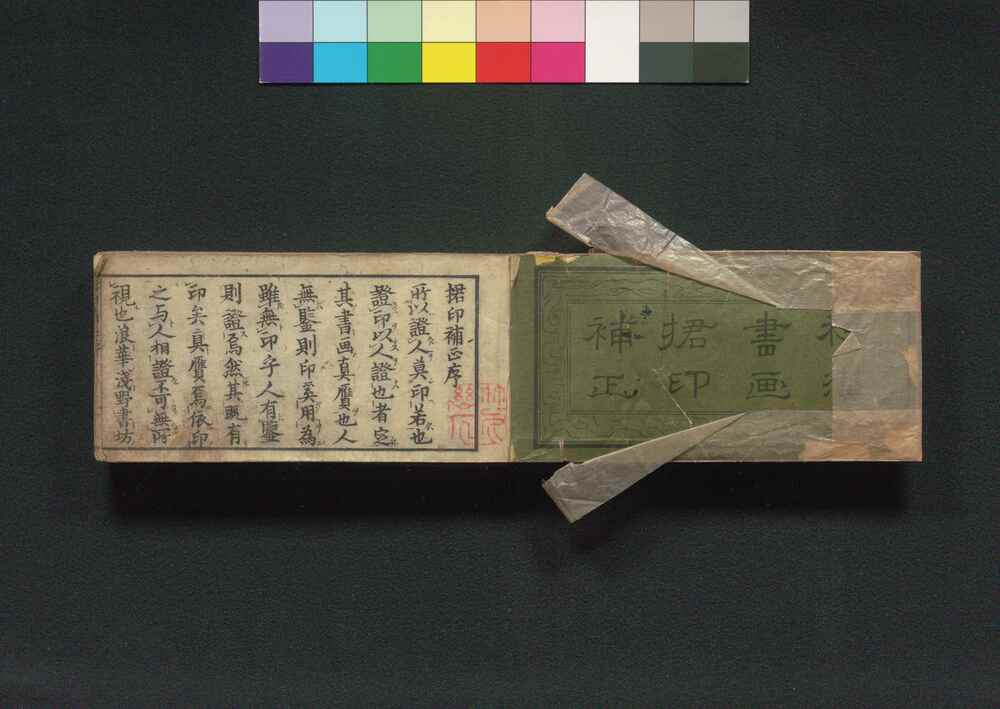 書画
捃印
補正
捃印補正序
所以證人莫印若也
證印以人證也者定
其書画真贋也人
無鑒則印奚用為
雖無印乎人有鑒
則證焉然其既有
印矣真贋焉依印
之与人相證不可無所
視也浪華淺野書坊